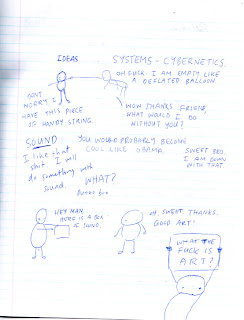 IDEAS
SYSTEMS - CYBERNETICS.
OH FUCK. I AM EMPTY LIKE
A DEFLATED BALLOON.
DONT
WORRY I
HAVE THIS PIECE
OF HANDY STRING.
WOW THANKS FRIEND,
WHAT WOULD I DO
WITHOUT YOU?
SOUND
I like that
shit I will
do something with
sound.
YOU WOULD PROBABLY BECOME
COOL LIKE OBAMA.
SWEET BRO.
I AM DOWN
WITH THAT.
WHAT?
HEY MAN.
HERE IS A BOX
OF SOUND.
OH, SWEET. THANKS.
GOOD ART!
WHAT THE
FUCK IS
ART?